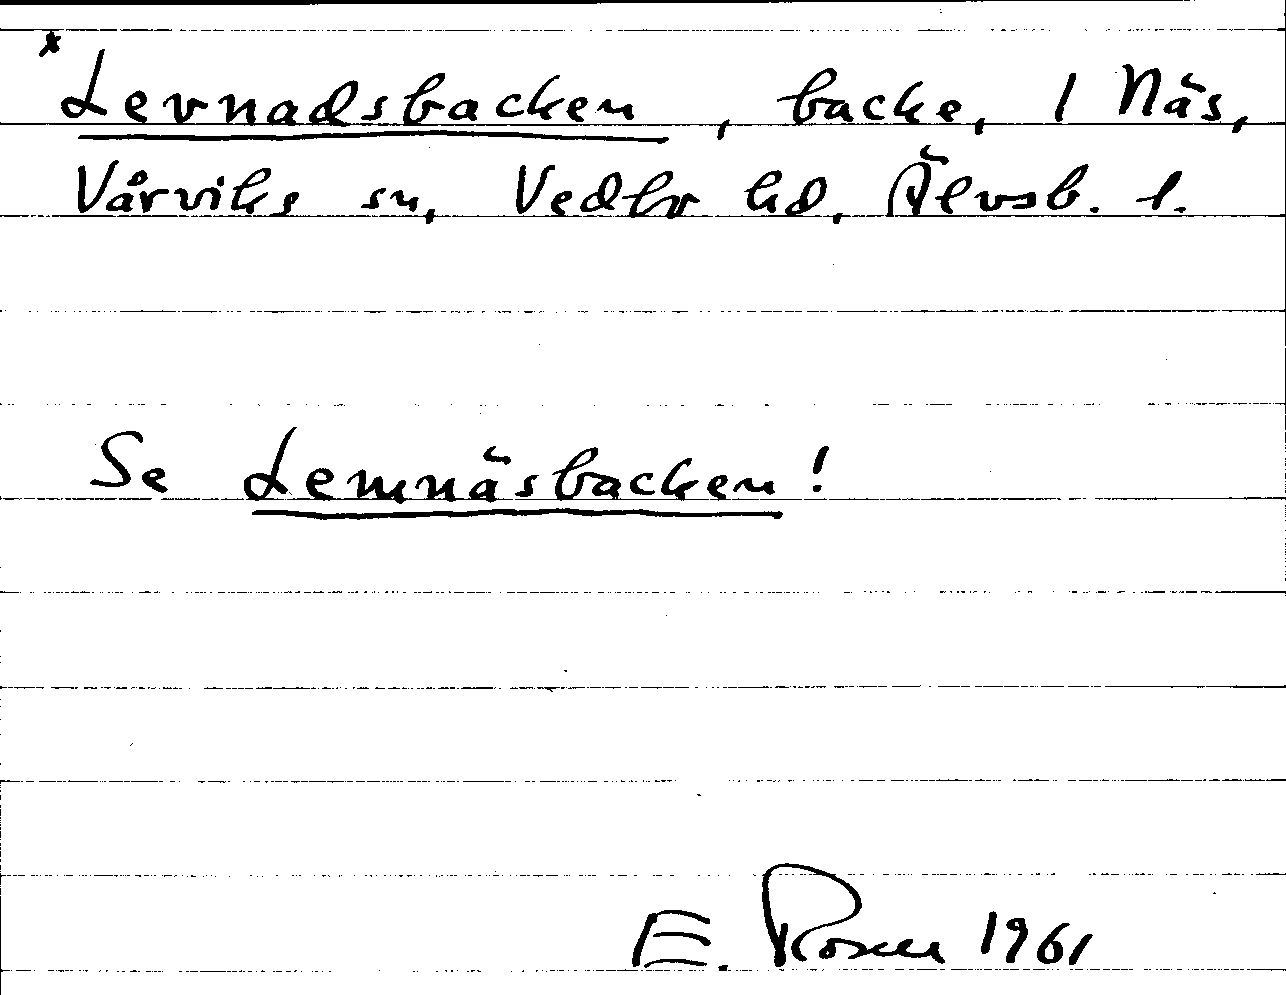 * Levnadsbacken, backe, 1 Näs,
Vårviks sn, Vedbo hd, Älvsb. l.
Se Lemnäsbacken!
E. Rosén 1961